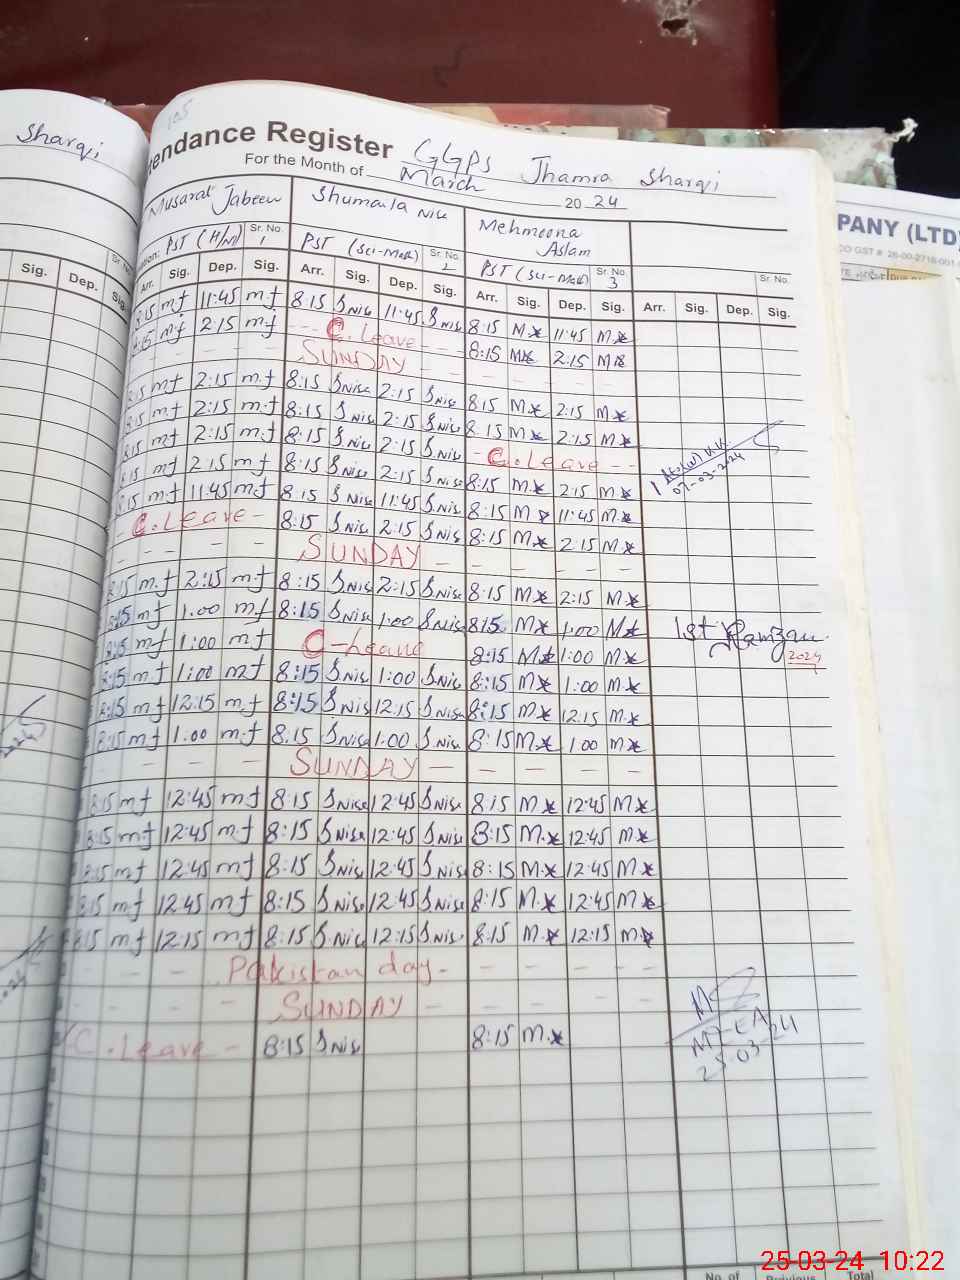 Sharqi
Attendance Register GGPS Jhamra Sharqi
For the Month of March 2024
Musarat Jabeen Shumaila Nisa Mehmoona Aslam
PST (H/M) Sr. No. 1 PST (Sci-Math) Sr. No. 2 PST (Sci-Math) Sr. No. 3 Sr. No.
Sig. Dep. Arr. Sig. Dep. Sig. Arr. Sig. Dep. Sig. Arr. Sig. Dep. Sig. Arr. Sig. Dep. Sig.
8:15 m.f 11:45 m.f 8:15 S Nisa 11:45 S Nisa 8:15 M.* 11:45 M.*
8:15 m.f 2:15 m.f C. Leave 8:15 M.* 2:15 M.*
SUNDAY
8:15 m.f 2:15 m.f 8:15 S Nisa 2:15 S Nisa 8:15 M.* 2:15 M.*
8:15 m.f 2:15 m.f 8:15 S Nisa 2:15 S Nisa 8:15 M.* 2:15 M.*
8:15 m.f 2:15 m.f 8:15 S Nisa 2:15 S Nisa C. Leave
8:15 m.f 2:15 m.f 8:15 S Nisa 2:15 S Nisa 8:15 M.* 2:15 M.* 07-03-2024
8:15 m.f 11:45 m.f 8:15 S Nisa 11:45 S Nisa 8:15 M.* 11:45 M.*
C. Leave 8:15 S Nisa 2:15 S Nisa 8:15 M.* 2:15 M.*
SUNDAY
8:15 m.f 2:15 m.f 8:15 S Nisa 2:15 S Nisa 8:15 M.* 2:15 M.*
8:15 m.f 1:00 m.f 8:15 S Nisa 1:00 S Nisa 8:15 M.* 1:00 M.* 1st Ramzan 2024
8:15 m.f 1:00 m.f C-Leave 8:15 M.* 1:00 M.*
8:15 m.f 1:00 m.f 8:15 S Nisa 1:00 S Nisa 8:15 M.* 1:00 M.*
8:15 m.f 12:15 m.f 8:15 S Nisa 12:15 S Nisa 8:15 M.* 12:15 M.*
8:15 m.f 1:00 m.f 8:15 S Nisa 1:00 S Nisa 8:15 M.* 1:00 M.*
SUNDAY
8:15 m.f 12:45 m.f 8:15 S Nisa 12:45 S Nisa 8:15 M.* 12:45 M.*
8:15 m.f 12:45 m.f 8:15 S Nisa 12:45 S Nisa 8:15 M.* 12:45 M.*
8:15 m.f 12:45 m.f 8:15 S Nisa 12:45 S Nisa 8:15 M.* 12:45 M.*
8:15 m.f 12:45 m.f 8:15 S Nisa 12:45 S Nisa 8:15 M.* 12:45 M.*
8:15 m.f 12:15 m.f 8:15 S Nisa 12:15 S Nisa 8:15 M.* 12:15 M.*
Pakistan day
SUNDAY
C. Leave 8:15 S Nisa 8:15 M.*
MEA
25-03-24
PANY (LTD)
25-03-24 10:22
No. of Previous Total